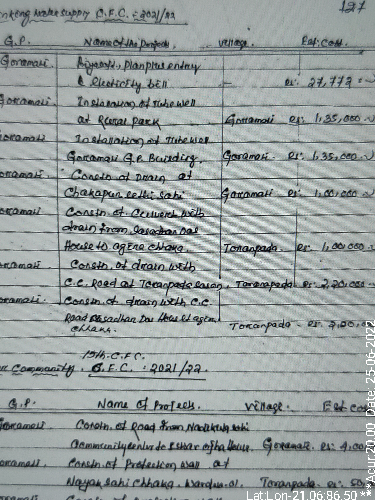 Drinking water supply C.F.C. = 2021/22
127
G.P. Name of the Projects. village. Est. Cost.
Goramati Priyasoft, Planplus entry
& Electricity bill — Rs. 27,772 = 00
Goramati. Installation of Tube well
at Rural park Goramati Rs. 1,35,000 = 00
Goramati Installation of Tube well
Goramati G.P. Building. Goramati. Rs. 1,35,000 = 00
Goramati. Constn. of Drain at
Chakapur sethi sahi Goramati Rs. 1,00,000 = 00
Goramati Constn. of Culvert with
drain from Sasadhar Das
House to agene chhaka Toranpada. Rs. 1,00,000 = 00
Goramati. Constn. of drain with
C.C. Road at Toranpada Toranapada. Rs. 2,20,000 = 00
Goramati. Constn. of drain with C.C.
Road Sasadhar Das House to agene
chhaka. Toranpada - Rs. 2,20,0
15th C.F.C.
Community. C.F.C. = 2021/22.
G.P. Name of Projects. Village. Est Cost
Goramati. Constn. of Road from sahi
Community centre to house. Goramati. Rs. 4,00
Goramati. Constn. of Protection wall at
Nayak sahi Chhaka, Toranpada. Rs. 50
Lat Lon-21.06:86.50 *** Acur 20.00, Date, 25-06-2022